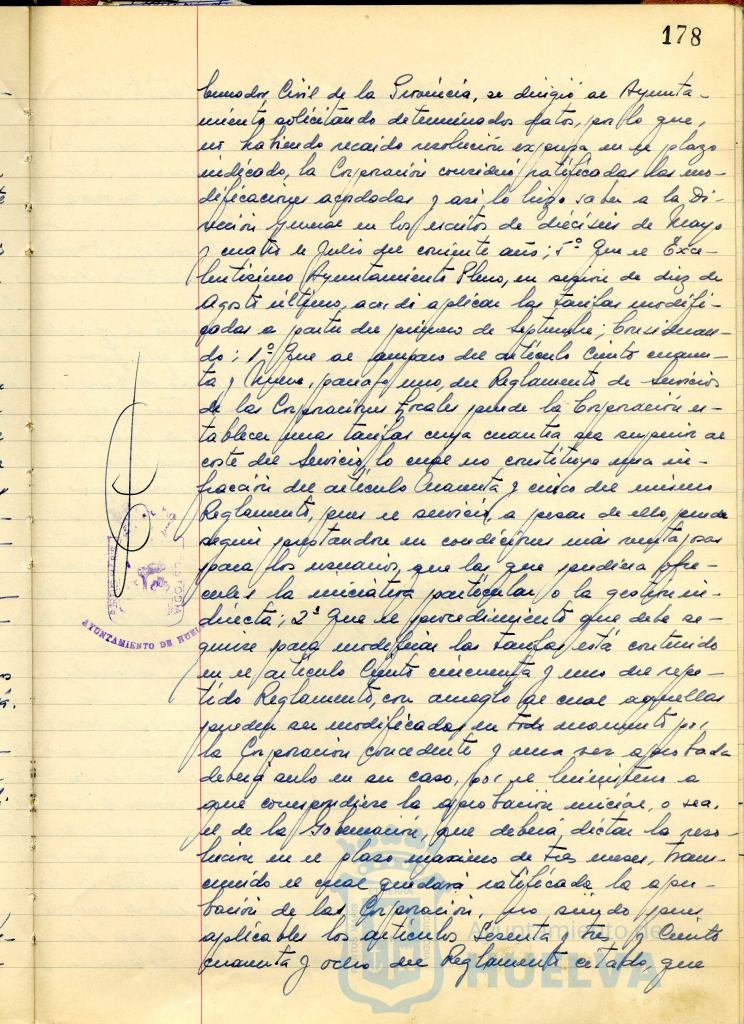 178
bernador Civil de la Provincia, se dirigió al Ayunta-
miento solicitando determinados datos, por lo que,
no habiendo recaido resolución expresa en el plazo
indicado, la Corporación consideró ratificadas las mo-
dificaciones acordadas y asi lo hizo saber a la Di-
rección General en los escritos de dieciseis de Mayo
y cuatro de Julio del corriente año; 5º Que el Exce-
lentísimo Ayuntamiento Pleno, en sesión de diez de
Agosto último, acordó aplicar las tarifas modifi-
cadas a partir del primero de Septiembre; Consideran-
do: 1º Que al amparo del artículo Ciento cuaren-
ta y Nueve, párrafo uno, del Reglamento de Servicios
de las Corporaciones Locales puede la Corporación es-
tablecer unas tarifas cuya cuantía sea superior al
coste del Servicio, lo cual no constituye una in-
fracción del artículo Cuarenta y cinco del mismo
Reglamento, pues el servicio, a pesar de ello, puede
seguir prestandose en condiciones más ventajosas
para los usuarios, que las que pudiera ofre-
cerles la iniciativa particular o la gestión in-
directa; 2º Que el procedimiento que debe se-
guirse para modificar las tarifas está contenido
en el artículo Ciento cincuenta y uno del repe-
tido Reglamento, con arreglo al cual aquellas
pueden ser modificadas en todo momento por
la Corporación concedente y una vez aprobada
deberá serlo en su caso, por el Ministerio a
que correspondiese la aprobación inicial, o sea,
el de la Gobernación, que deberá dictar la reso-
lución en el plazo máximo de tres meses, trans-
currido el cual quedará ratificada la apro-
bación de las Corporación, no siendo pues
aplicables los artículos Sesenta y tres y Ciento
cuarenta y ocho del Reglamento citado, que
AYUNTAMIENTO DE HUELVA
CUSTODIA
Ayuntamiento de
HUELVA